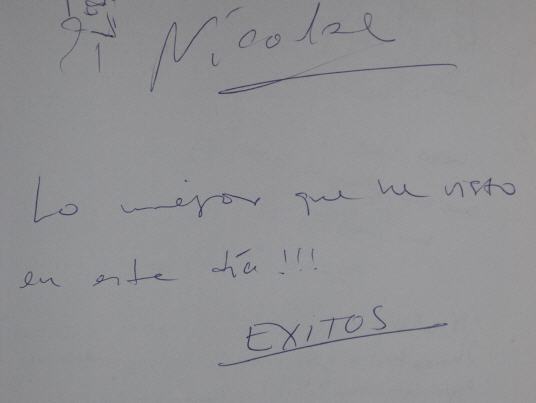 Nicolae
Lo mejor que he visto
en este día!!!
EXITOS